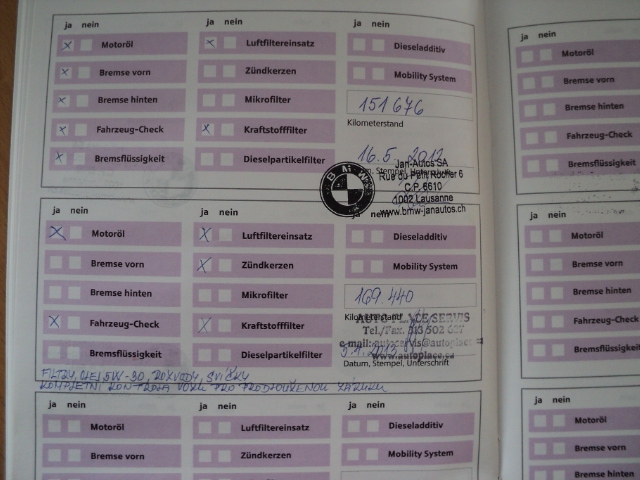 ja nein
Motoröl
Bremse vorn
Bremse hinten
Fahrzeug-Check
Bremsflüssigkeit
ja nein
Luftfiltereinsatz
Zündkerzen
Mikrofilter
Kraftstofffilter
Dieselpartikelfilter
ja nein
Dieseladditiv
Mobility System
151 676
Kilometerstand
16.5. 2012
Stempel,
BMW
Jan-Autos SA
Rue du Petit Rocher 6
C.P. 6610
1002 Lausanne
www.bmw-janautos.ch
ja nein
Motoröl
Bremse vorn
Bremse hinten
Fahrzeug-Check
Bremsflüssigkeit
ja nein
Luftfiltereinsatz
Zündkerzen
Mikrofilter
Kraftstofffilter
Dieselpartikelfilter
nein
Dieseladditiv
Mobility System
169.440
Kilometerstand
AUTOPLACE/SERVIS
Tel./Fax.
e-mail:
www.autoplace.cz
Datum, Stempel, Unterschrift
FILTRY, OLEJ 5W-30, ROZVODY, SVÍČKY
KOMPLETNÍ KONTROLA VOZU PRO PRODLOUŽENOU ZÁRUKU
ja nein
Motoröl
Bremse vorn
ja nein
Luftfiltereinsatz
Zündkerzen
ja nein
Dieseladditiv
Mobility System
ja nein
Motoröl
Bremse vorn
Bremse hinten
Fahrzeug-Check
Bremsflüssigkeit
ja nein
Motoröl
Bremse vorn
Bremse hinten
Fahrzeug-Check
Bremsflüssigkeit
ja nein
Motoröl
Bremse vorn
Bremse hinten